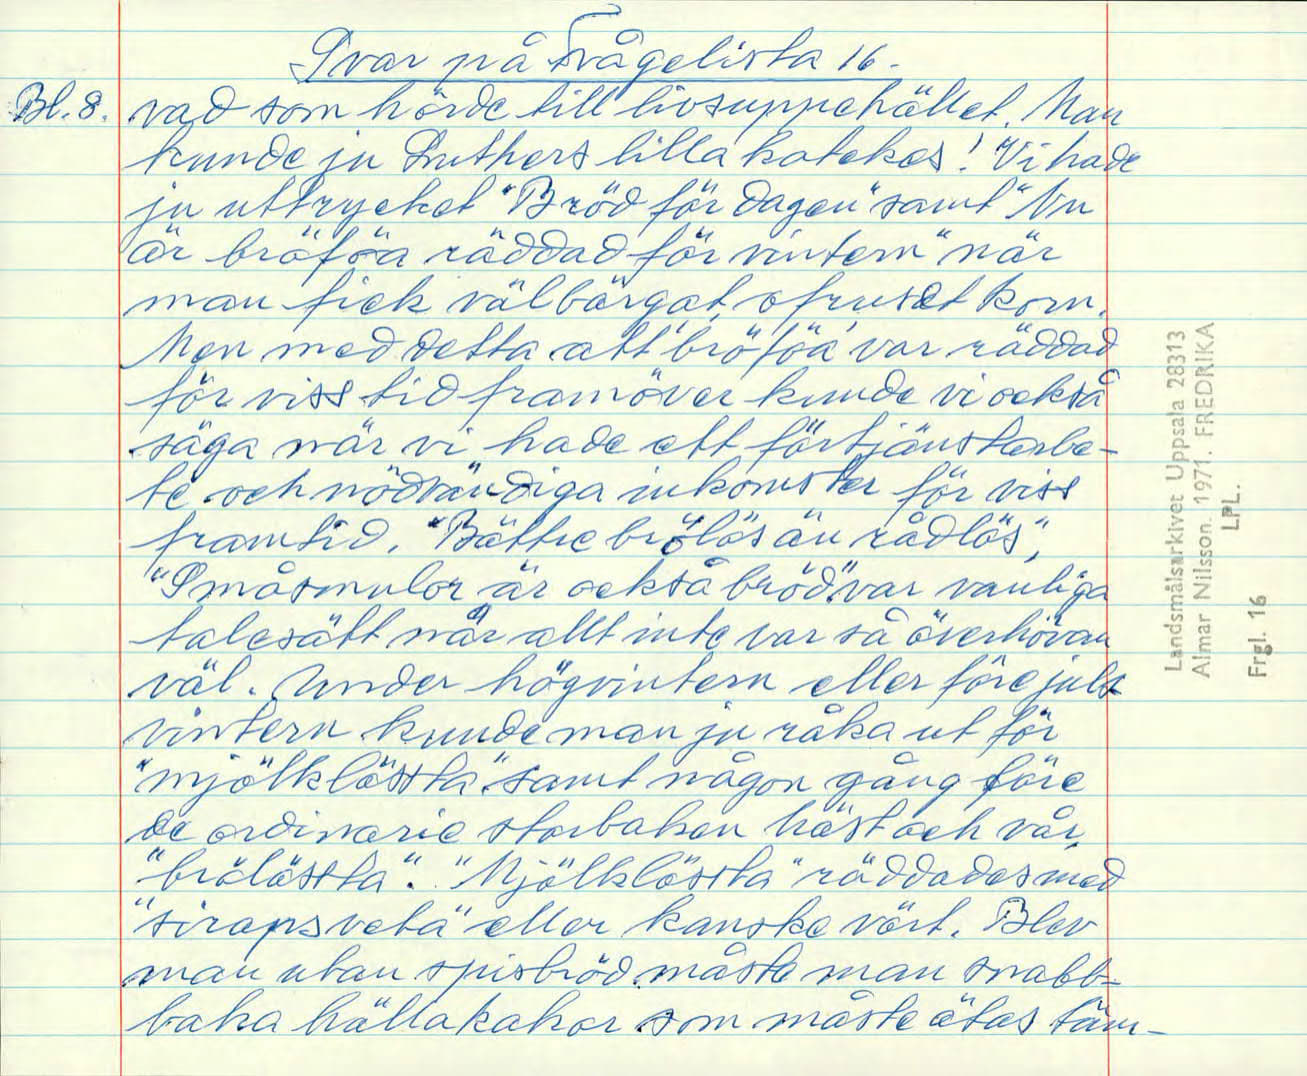 Svar på Frågelista 16.
Bl. 8. vad som hörde till livsuppehället. Man
kunde ju Luthers lilla katekes! Vi hade
ju uttrycket "Bröd för dagen" samt "Nu
är bröföa räddad för vintern" när
man fick välbärgat, ofruset korn.
Men med detta att "bröföa" var räddad
för viss tid framöver kunde vi också
säga när vi hade ett förtjänstarbe-
te och nödvändiga inkomster för viss
framtid. "Bättre brölös än rådlös",
"Småsmulor är också bröd" var vanliga
talesätt när allt inte var så överhövan
väl. Under högvintern eller förejuls
vintern kunde man ju råka ut för
"mjölklösta" samt någon gång före
de ordinarie storbaken höst och vår,
"brölösta". "Mjölklösta" räddades med
"sirapsveta" eller kanske vört. Blev
man utan spisbröd måste man snabb-
baka hällakakor som måste ätas täm-
Landsmålsarkivet Uppsala 28313
Almar Nilsson. 1971. FREDRIKA
LPL.
Frgl. 16